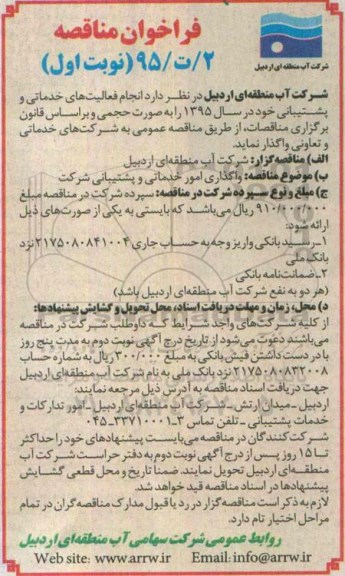 فراخوان مناقصه
۲/ت/۹۵ (نوبت اول)
شرکت آب منطقه ای اردبیل
شرکت آب منطقه‌ای اردبیل در نظر دارد انجام فعالیت‌های خدماتی و
پشتیبانی خود در سال ۱۳۹۵ را به صورت حجمی و بر اساس قانون
برگزاری مناقصات، از طریق مناقصه عمومی به شرکت‌های خدماتی
و تعاونی واگذار نماید.
الف) مناقصه‌گزار: شرکت آب منطقه‌ای اردبیل
ب) موضوع مناقصه: واگذاری امور خدماتی و پشتیبانی شرکت
ج) مبلغ و نوع سپرده شرکت در مناقصه: سپرده شرکت در مناقصه مبلغ
۹۱۰/۰۰۰/۰۰۰ ریال می‌باشد که بایستی به یکی از صورت‌های ذیل
ارائه شود:
۱ـ رسید بانکی واریز وجه به حساب جاری ۲۱۷۵۰۸۰۸۴۱۰۰۴ نزد
بانک ملی
۲ـ ضمانت‌نامه بانکی
(هر دو به نفع شرکت آب منطقه‌ای اردبیل باشد)
د) محل، زمان و مهلت دریافت اسناد، محل تحویل و گشایش پیشنهادها:
از کلیه شرکت‌های واجد شرایط که داوطلب شرکت در مناقصه
می‌باشند دعوت می‌شود از تاریخ درج آگهی نوبت دوم به مدت پنج روز
با در دست داشتن فیش بانکی به مبلغ ۳۰۰/۰۰۰ ریال به شماره حساب
۲۱۷۵۰۸۰۸۳۲۰۰۸ نزد بانک ملی به نام شرکت آب منطقه‌ای اردبیل
جهت دریافت اسناد مناقصه به آدرس ذیل مراجعه نمایند:
اردبیل ـ میدان ارتش ـ شرکت آب منطقه‌ای اردبیل ـ امور تدارکات و
خدمات پشتیبانی ـ تلفن تماس ۳ـ۳۳۷۱۰۰۰۱ـ۰۴۵
شرکت‌کنندگان در مناقصه می‌بایست پیشنهادهای خود را حداکثر
تا ۱۵ روز پس از درج آگهی نوبت دوم به دفتر حراست شرکت آب
منطقه‌ای اردبیل تحویل نمایند. ضمناً تاریخ و محل قطعی گشایش
پیشنهادها در اسناد مناقصه قید خواهد شد.
لازم به ذکر است مناقصه‌گزار در رد یا قبول مدارک مناقصه‌گران در تمام
مراحل اختیار تام دارد.
روابط عمومی شرکت سهامی آب منطقه‌ای اردبیل
Web site: www.arrw.ir Email: info@arrw.ir